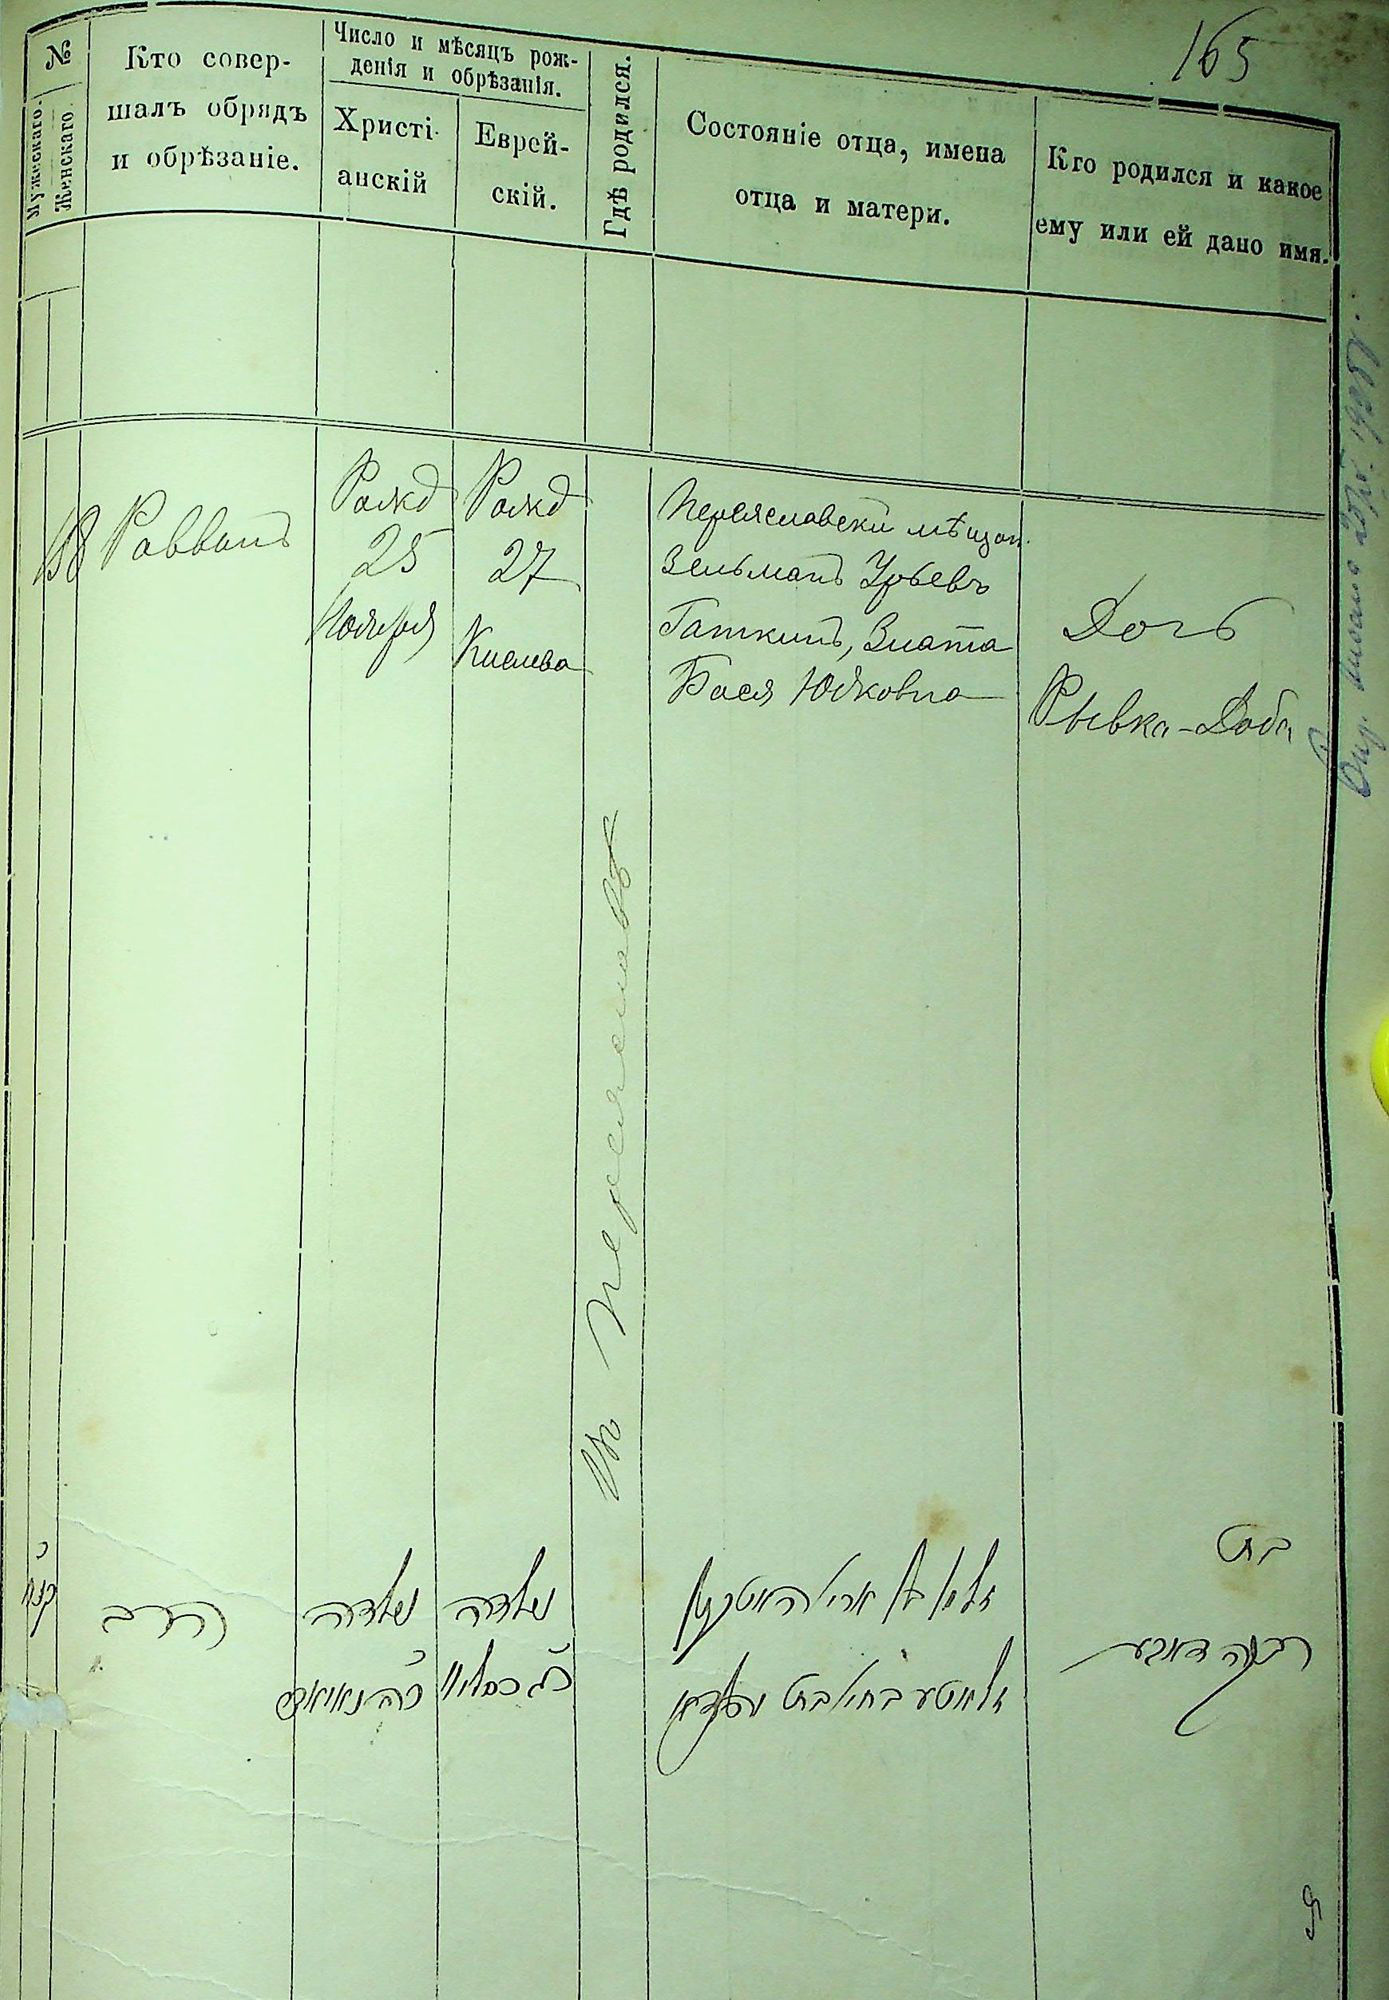 165
№
Мужескаго.
Женскаго.
Кто совер-
шалъ обрядъ
и обрѣзаніе.
Число и мѣсяцъ рож-
денія и обрѣзанія.
Христі-
анскій
Еврей-
скій.
Гдѣ родился.
Состояніе отца, имена
отца и матери.
Кто родился и какое
ему или ей дано имя.
158
Раввинъ
Рожд
25
Ноября
Рожд
27
Кислева
Въ Переяславѣ
Переяславски мѣщан.
Зельманъ Урьевъ
Гаткинъ, Злата
Бася Юдковна
Дочь
Рывка-Доба
הרב
נולדה
נולדה
כ"ה נאיאבר
כסליו
בת
רבקה דאבע